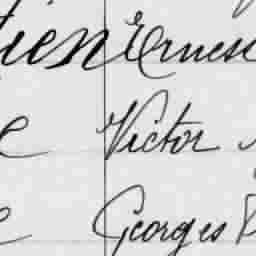 ien Ernest
Victor
Georges